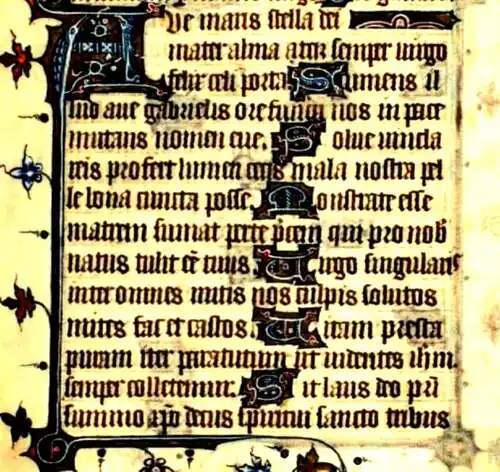 Ave maris stella dei
mater alma atq; semper uirgo
felix celi porta Sumens il
lud aue gabrielis ore funda nos in pace
mutans nomen eue. Solue uincla
reis profer lumen cecis mala nostra pel
le bona cuncta posce. Monstra te esse
matrem sumat per te p̄cem qui pro nob̄
natus tulit eē tuus Uirgo singularis
inter omnes mitis nos culpis solutos
mites fac et castos. Uitam presta
puram iter para tutum ut uidentes ih̄m.
semper colletemur. Sit laus deo pr̄i
summo xp̄o decus spiritui sancto tribus